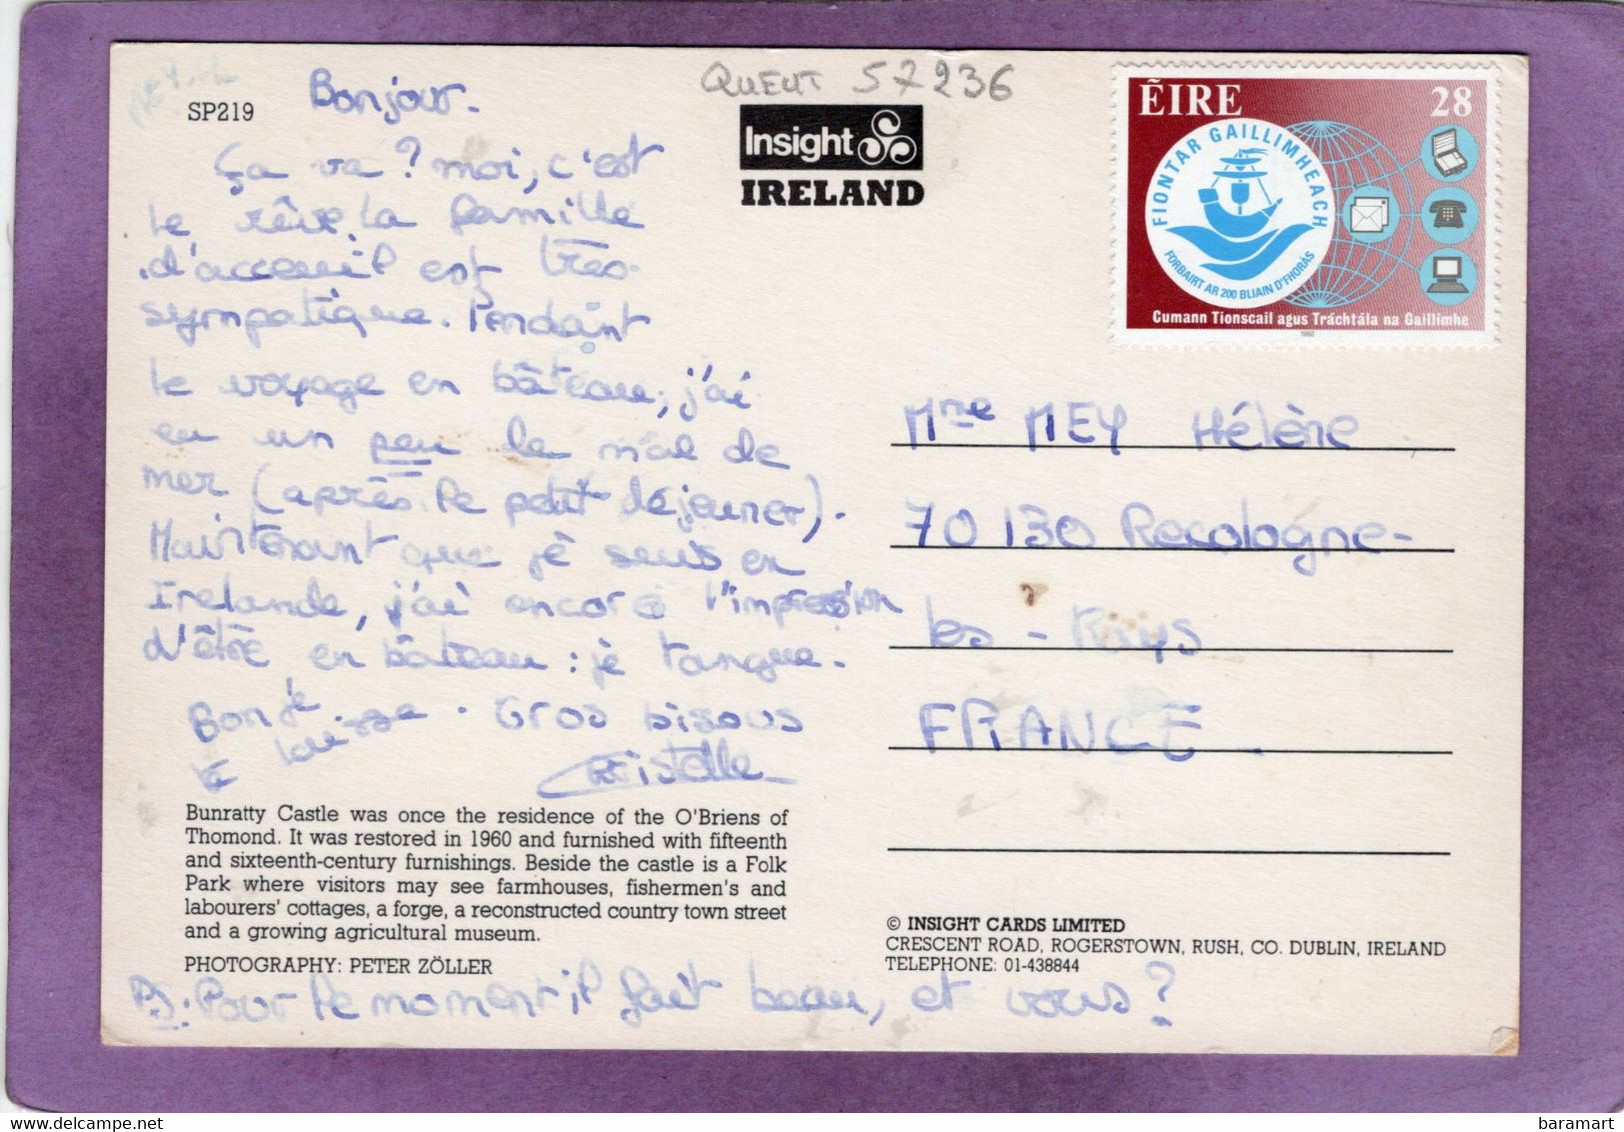 SP219
Bonjour.
Ça va ? moi, c'est
le rêve. La famille
d'acceuil est très
sympatique. Pendant
le voyage en bâteau, j'ai
eu un peu le mal de
mer (après le petit déjeuner).
Maintenant que je suis en
Irelande, j'ai encore l'impression
d'être en bâteau : je tangue.
Bon je
te laisse. Gros bisous
Cristelle
Bunratty Castle was once the residence of the O'Briens of
Thomond. It was restored in 1960 and furnished with fifteenth
and sixteenth-century furnishings. Beside the castle is a Folk
Park where visitors may see farmhouses, fishermen's and
labourers' cottages, a forge, a reconstructed country town street
and a growing agricultural museum.
PHOTOGRAPHY: PETER ZÖLLER
PS: Pour le moment, il fait beau, et vous ?
57236
Insight
IRELAND
ÉIRE 28
FIONTAR GAILLIMHEACH
FORBAIRT AR 200 BLIAIN D'FHORÁS
Cumann Tionscail agus Tráchtála na Gaillimhe
1992
Mme MEY Hélène
70 130 Recologne-
les - Rays
FRANCE
© INSIGHT CARDS LIMITED
CRESCENT ROAD, ROGERSTOWN, RUSH, CO. DUBLIN, IRELAND
TELEPHONE: 01-438844
delcampe.net
baramart